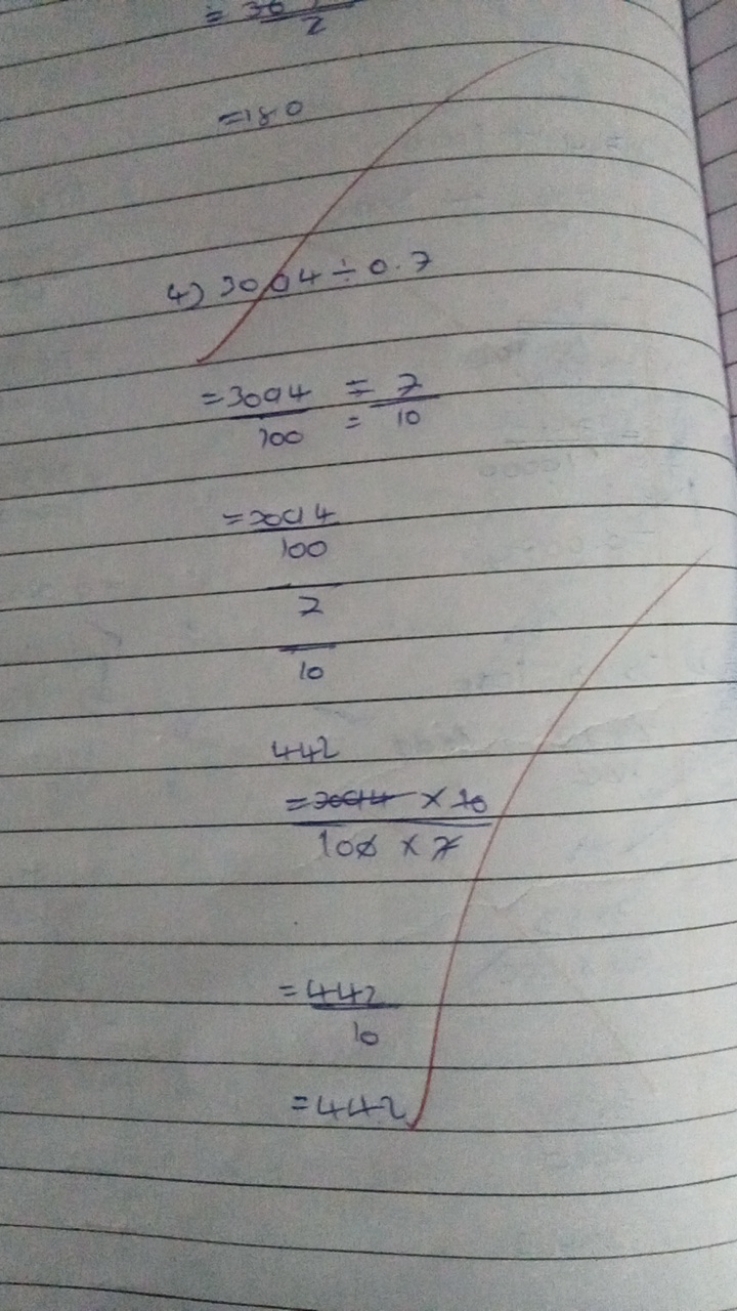 = 36
2
=180
4) 3094 ÷ 0.7
= 3094 ÷ 7
100 = 10
= 3094
100
7
10
442
= 3094 × 10
100 × 7
= 442
10
= 442